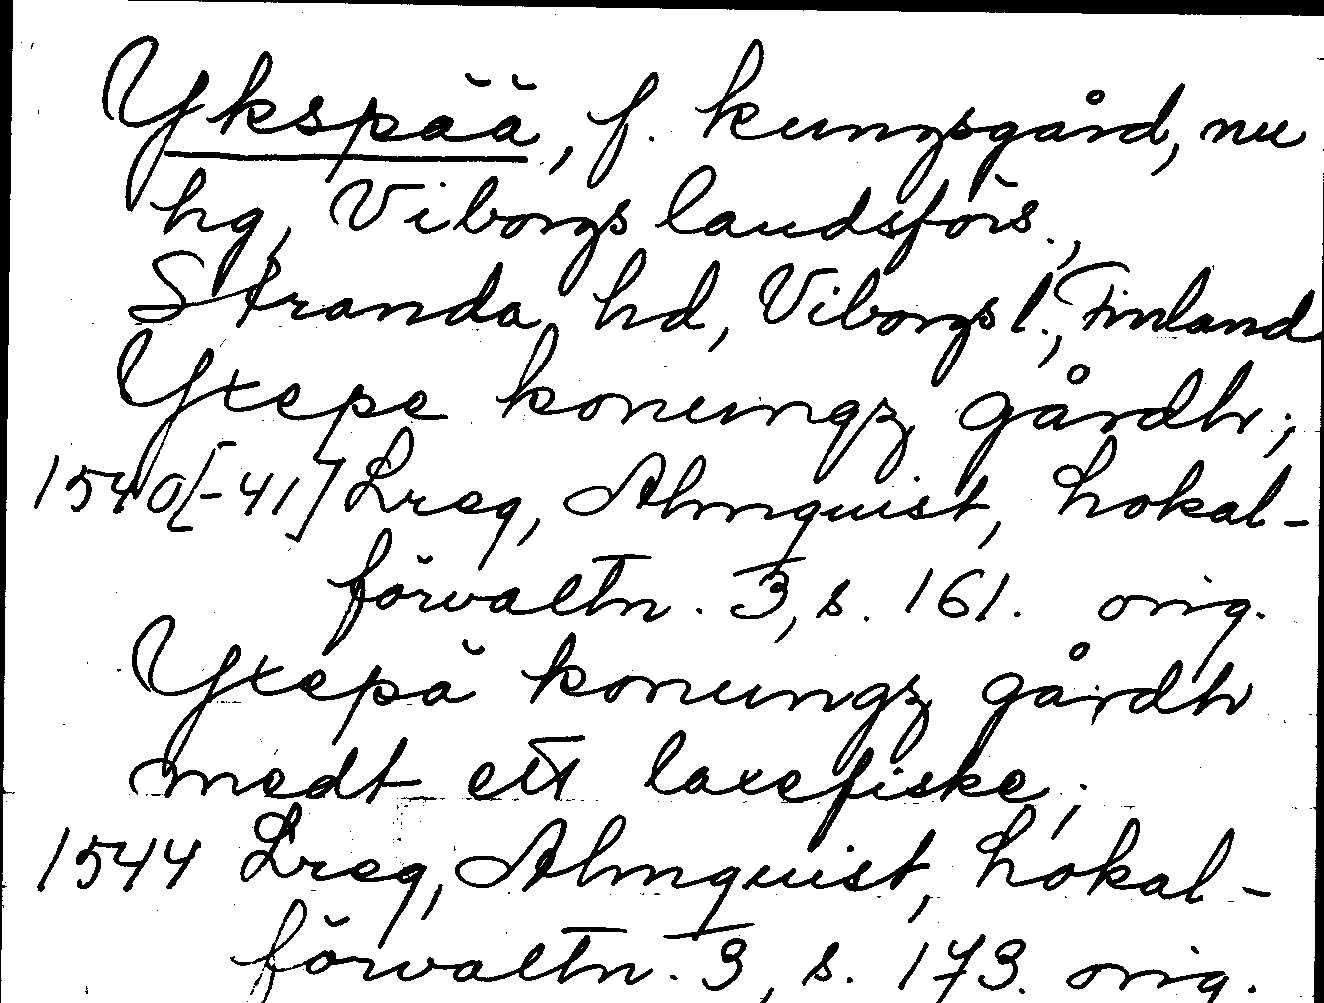 Ykspää, f. kungsgård, nu
hg, Viborgs landsförs.,
Stranda hd, Viborgs l., Finland
Yxepe konungz gårdh;
1540[-41] Lreg, Almquist, Lokal-
förvaltn. 3, s. 161. orig.
Yxepä konungz gårdh
medt ett laxefiske;
1544 Lreg, Almquist, Lokal-
förvaltn. 3, s. 173. orig.